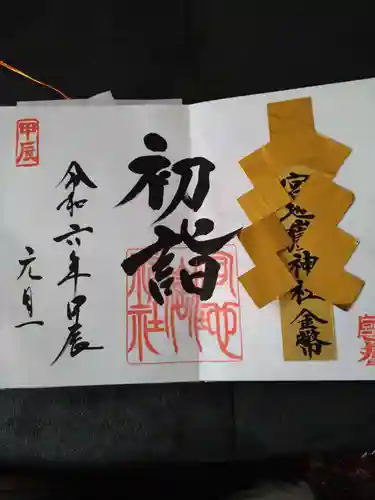 宮地嶽神社金幣
初詣
宮地嶽神社
甲辰
令和六年甲辰
元旦